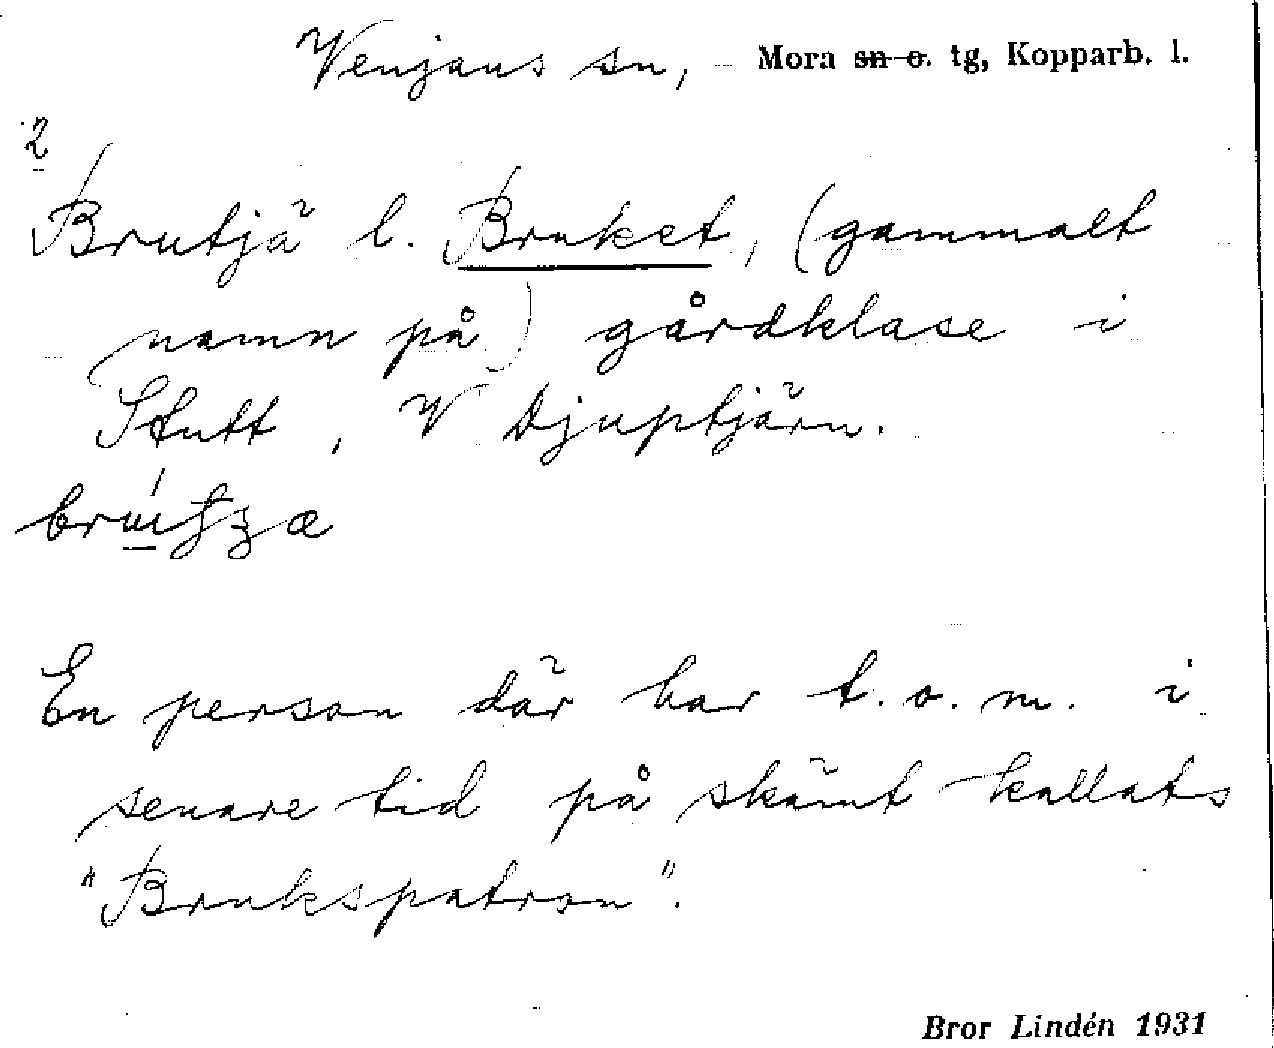 Venjans sn, Mora sn o. tg, Kopparb. l.
2
Brutjä l. Bruket, (gammalt
namn på) gårdklase i
Stutt, V Djuptjärn.
En person där har t.o.m. i
senare tid på skämt kallats
"Brukspatron".
Bror Lindén 1931